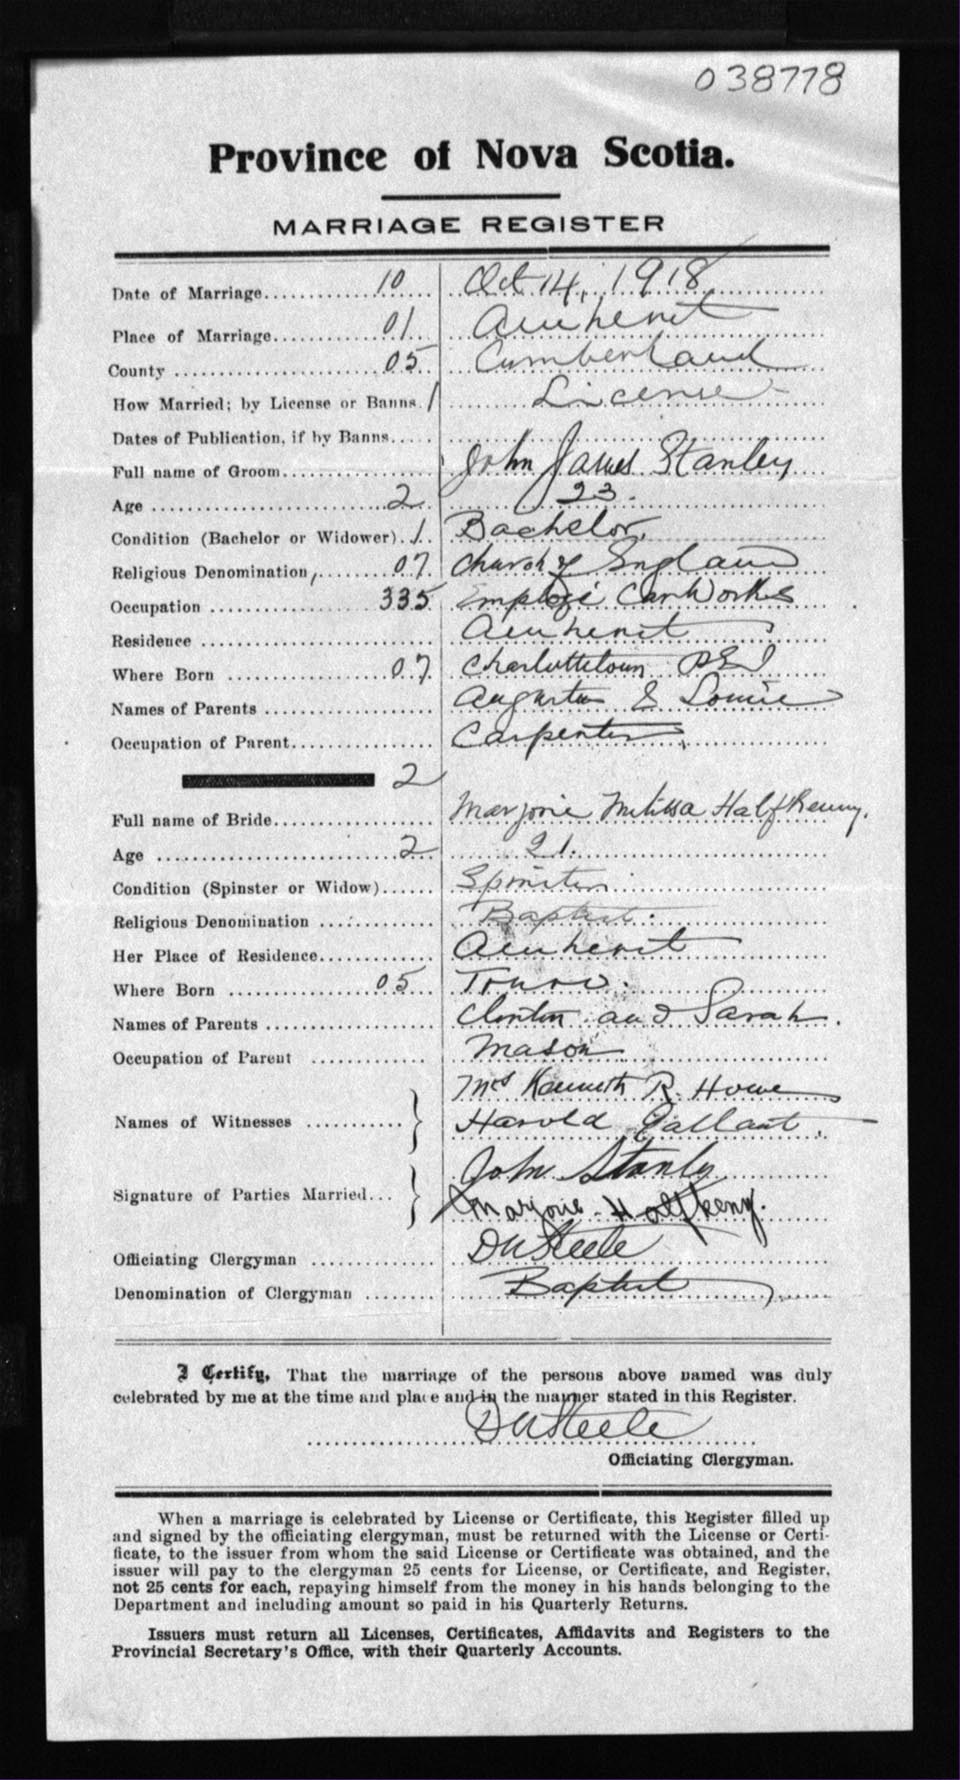 038778
Province of Nova Scotia.
MARRIAGE REGISTER
Date of Marriage.............10.... Oct 14, 1918
Place of Marriage..............01.. Amherst
County ........................05.. Cumberland
How Married; by License or Banns. 1 License
Dates of Publication, if by Banns.....
Full name of Groom................. John James Stanley
Age ...........................2... 23.
Condition (Bachelor or Widower)..1. Bachelor
Religious Denomination,........07. Church of England
Occupation ................335. Employe Car Works
Residence ......................... Amherst
Where Born ................07. Charlottetown PEI
Names of Parents .................. Augustus & Louise
Occupation of Parent............... Carpenter
2
Full name of Bride................. Marjorie Milissa Halfkenny.
Age ..........................2... 21.
Condition (Spinster or Widow)...... Spinster
Religious Denomination ............ Baptist.
Her Place of Residence............. Amherst
Where Born ...............05... Truro.
Names of Parents .................. Clinton and Sarah.
Occupation of Parent ............. Mason
Mrs Kenneth R. Howe
Names of Witnesses ........... } Harold Gallant.
John Stanley
Signature of Parties Married... } Marjorie Halfkeny.
Officiating Clergyman ............. D Steele
Denomination of Clergyman ........ Baptist
I Certify, That the marriage of the persons above named was duly
celebrated by me at the time and place and in the manner stated in this Register.
D Steele
Officiating Clergyman.
When a marriage is celebrated by License or Certificate, this Register filled up
and signed by the officiating clergyman, must be returned with the License or Certi-
ficate, to the issuer from whom the said License or Certificate was obtained, and the
issuer will pay to the clergyman 25 cents for License, or Certificate, and Register,
not 25 cents for each, repaying himself from the money in his hands belonging to the
Department and including amount so paid in his Quarterly Returns.
Issuers must return all Licenses, Certificates, Affidavits and Registers to the
Provincial Secretary's Office, with their Quarterly Accounts.